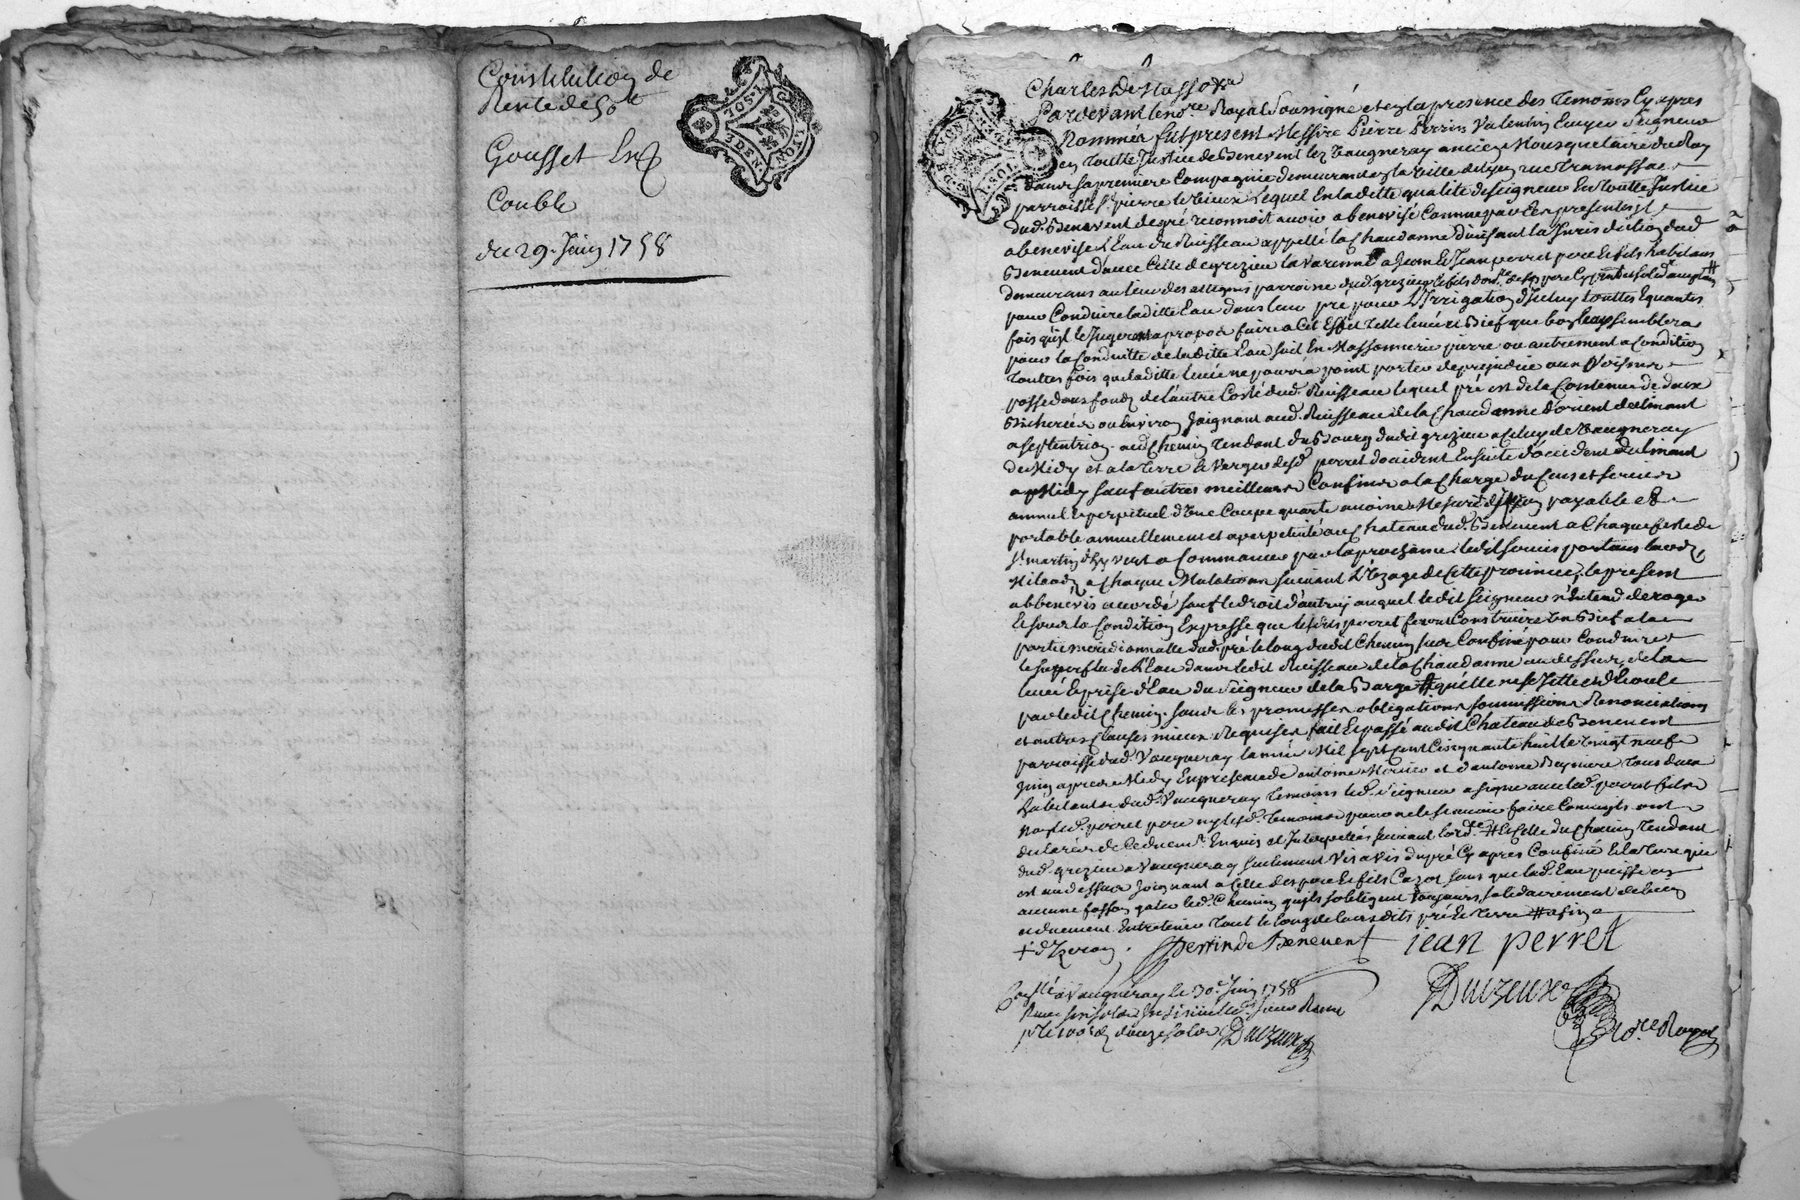 Constitution de
Rente de 50 lt
Gousset
Couble
du 29. Juin 1758
Pardevant le no.re Royal Soussigné et en la presence des Temoins Cy apres
Nommés fut present Messire Pierre Perrin Valentin Ecuyer Seigneur
en Toutte Justice de Benevent lez Vaugneray ancien Mousquetaire du Roy
dans sa premiere Compagnie demeurant en la Ville de Lyon rue Tramassac
parroisse St pierre le vieux Lequel En laditte qualité de seigneur En Toutte Justice
dud. Benevent de gré reconnoit avoir abenevisé Comme par Ces presentes Il
abenevise L'Eau du Ruisseau appellé la Chaudanne Divisant la Jurisdiction dud
Benevent d'avec Celle de grezieu la varenne a Jean Et Jean perret pere Et fils habitans
demeurans au lieu des parroisse dud. grezieu
pour Conduire laditte Eau dans leur pré pour L'Irrigation d'Iceluy touttes Equantes
fois qu'il le Jugeront a propos faire a Cet Effet Telle levée et Bief que bon leur semblera
pour la Conduitte de laditte Eau soit En Massonnerie pierre ou autrement a Condition
Touttes fois que laditte levée ne pourra point porter de prejudice aux Voisins
possedans fonds de l'autre Costé dud. Ruisseau lequel pré est de la Contenue de deux
Bicherées ou Environ Joignant aud. Ruisseau de la Chaudanne d'orient declinant
a septentrion. au Chemin Tendant du Bourg dudit grezieu a Celuy de Vaugneray
de Midy et a la Terre Et Verger desd perret d'occident Ensuite d'occident declinant
a Midy sauf autres meilleurs Confins a la Charge du Cens et servis
annuel Et perpetuel d'une Coupe quarte avoine Mesure de Lyon payable et
portable annuellement et a perpetuité au Chateau dud. Benevent a Chaque feste de
St martin d'hyvert a Commancer par la prochaine ledit servis portant laods
Milaods a Chaque Mutation suivant L'Uzage de Cette province, le present
abbenévis accordé sauf le droit d'autruy auquel ledit seigneur n'Entend deroger
Et sous la Condition Expresse que lesdits perret feront Construire Un Bief a la
partie meridionnalle dud. pré le long dudit Chemin sus Confiné pour Conduire
le superflu de l'Eau dans ledit Ruisseau de la Chaudanne au dessus de la
levée Et prise d'Eau du seigneur de la Barge qu'elle ne se Jette et d'Ecoule
par ledit Chemin. sous les promesses obligations soumissions Renonciations
et autres Clauses mieux Requises fait Et passé audit Chateau de Benevent
parroisse dud. Vaugneray l'année Mil sept Cent Cinquante huitte vingt neuf
Juin apres Midy En presence de antoine et d'antoine tous deux
habitants dudt Vaugneray Temoins led. seigneur a signé avec led. perret fils
Non led. perret pere ny lesd. Temoins pour ne le scavoir faire Comme ils ont
declaré de Ce duem.t Enquis et Interpellés suivant l'ord.ce # Et Celle du Chemin Tendant
dud. grezieu a Vaugneray seulement Vis a vis du pré Cy apres Confiné Et la Terre qui
est au dessus Joignant a Celle des pere Et fils Cazot sans que lad. Eau puisse en
aucune fasson gater led. Chemin qu'ils s'obligent Toujours solidairement de bien
et duement Entretenir Tout le long de leursdits pré Et Terre # afin
Perrin de Benevent jean perret
Conllé a Vaugneray le 30e. Juin 1758
Duizeux
No.re Royal
Duizeux